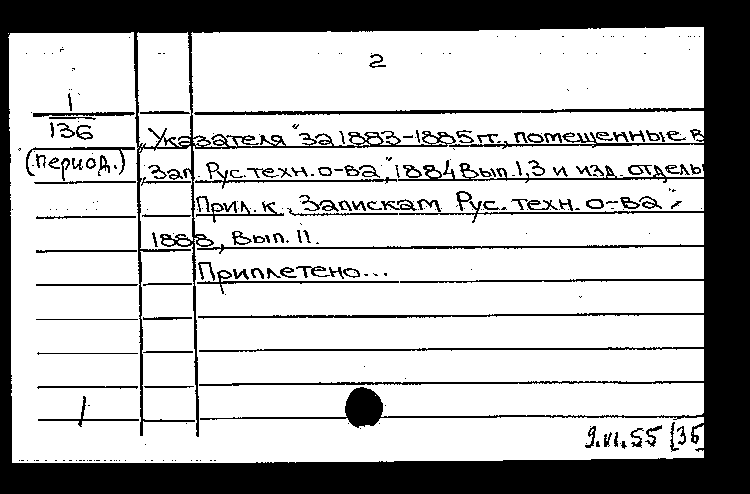 2
1
136
(период.)
„Указателя" за 1883-1885 гг., помещенные в
„Зап. Рус. техн. о-ва," 1884 вып. 1,3 и изд. отдель
Прил. к „Запискам Рус. техн. о-ва",
1888, вып. 11.
Приплетено...
1
9.VI.55 [35